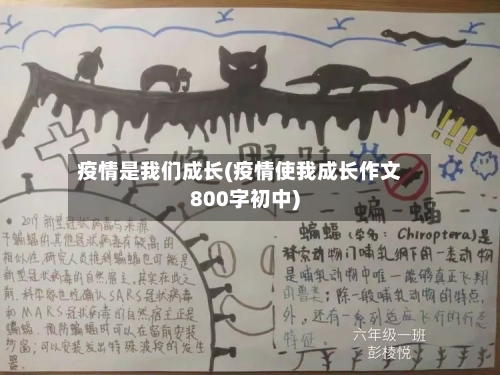 拒绝野味
疫情是我们成长(疫情使我成长作文
800字初中)
蝙蝠
2019新型冠状病毒与来源
于蝙蝠的其他冠状病毒有较高的
相似性,研究人员推测蝙蝠也可能是
新型冠状病毒的自然宿主,其实在此之
前,科学家已经确认SARS冠状病毒
和MARS冠状病毒的自然宿主正是
蝙蝠。预防蝙蝠时可以在窗前安装
纱窗;可以安装发出特殊波段的发生
器
蝙蝠(学名:Chiroptera)是
脊索动物门哺乳纲下的一类动物
是哺乳动物中唯一能够真正飞翔
的兽类;除一般哺乳动物的特点
外,还有一系列适应飞行的形态
特征。
六年级一班
彭棱悦